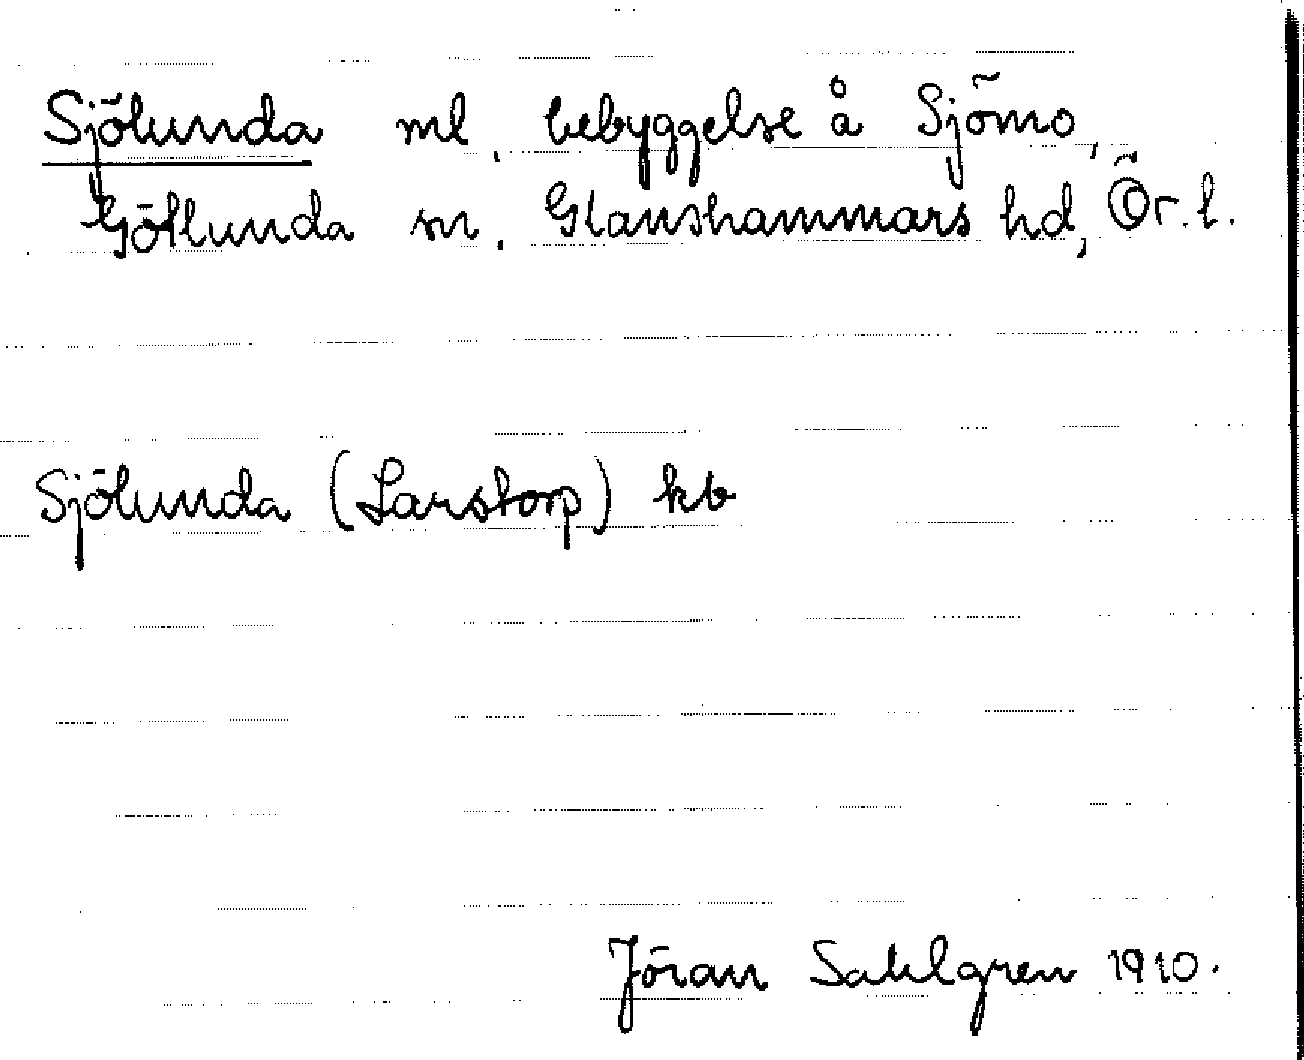 Sjölunda ml, bebyggelse å Sjömo,
Götlunda sn, Glanshammars hd, Ör. l.
Sjölunda (Larstorp) kb
Jöran Sahlgren 1910.